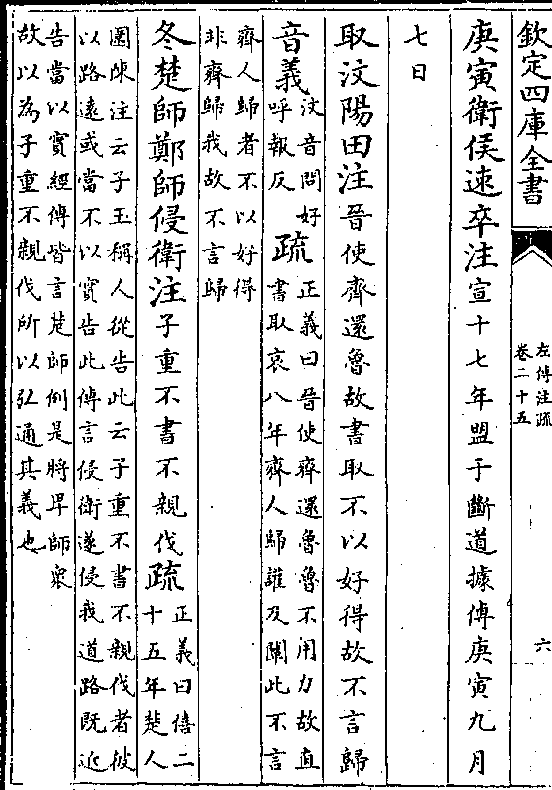 欽定四庫全書
左傳注疏
卷二十五
六
庚寅衛侯速卒注宣十七年盟于斷道據傳庚寅九月
七日
取汶陽田注晉使齊還魯故書取不以好得故不言歸
音義汶音問好
呼報反疏正義曰晉使齊還魯魯不用力故直
書取哀八年齊人歸讙及闡此不言
齊人歸者不以好得
非齊歸我故不言歸
冬楚師鄭師侵衛注子重不書不親伐疏正義曰僖二
十五年楚人
圍陳注云子玉稱人從告此云子重不書不親伐者彼
以路遠或當不以實告此傳言侵衛遂侵我道路既近
告當以實經傳皆言楚師例是將卑師衆
故以為子重不親伐所以弘通其義也